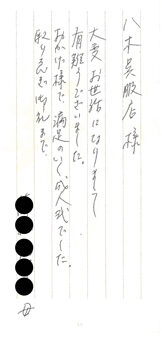 八木呉服店様
大変お世話になりまして
有難うございました。
おかげ様で、満足のいく成人式でした。
取り急ぎ御礼まで。
母